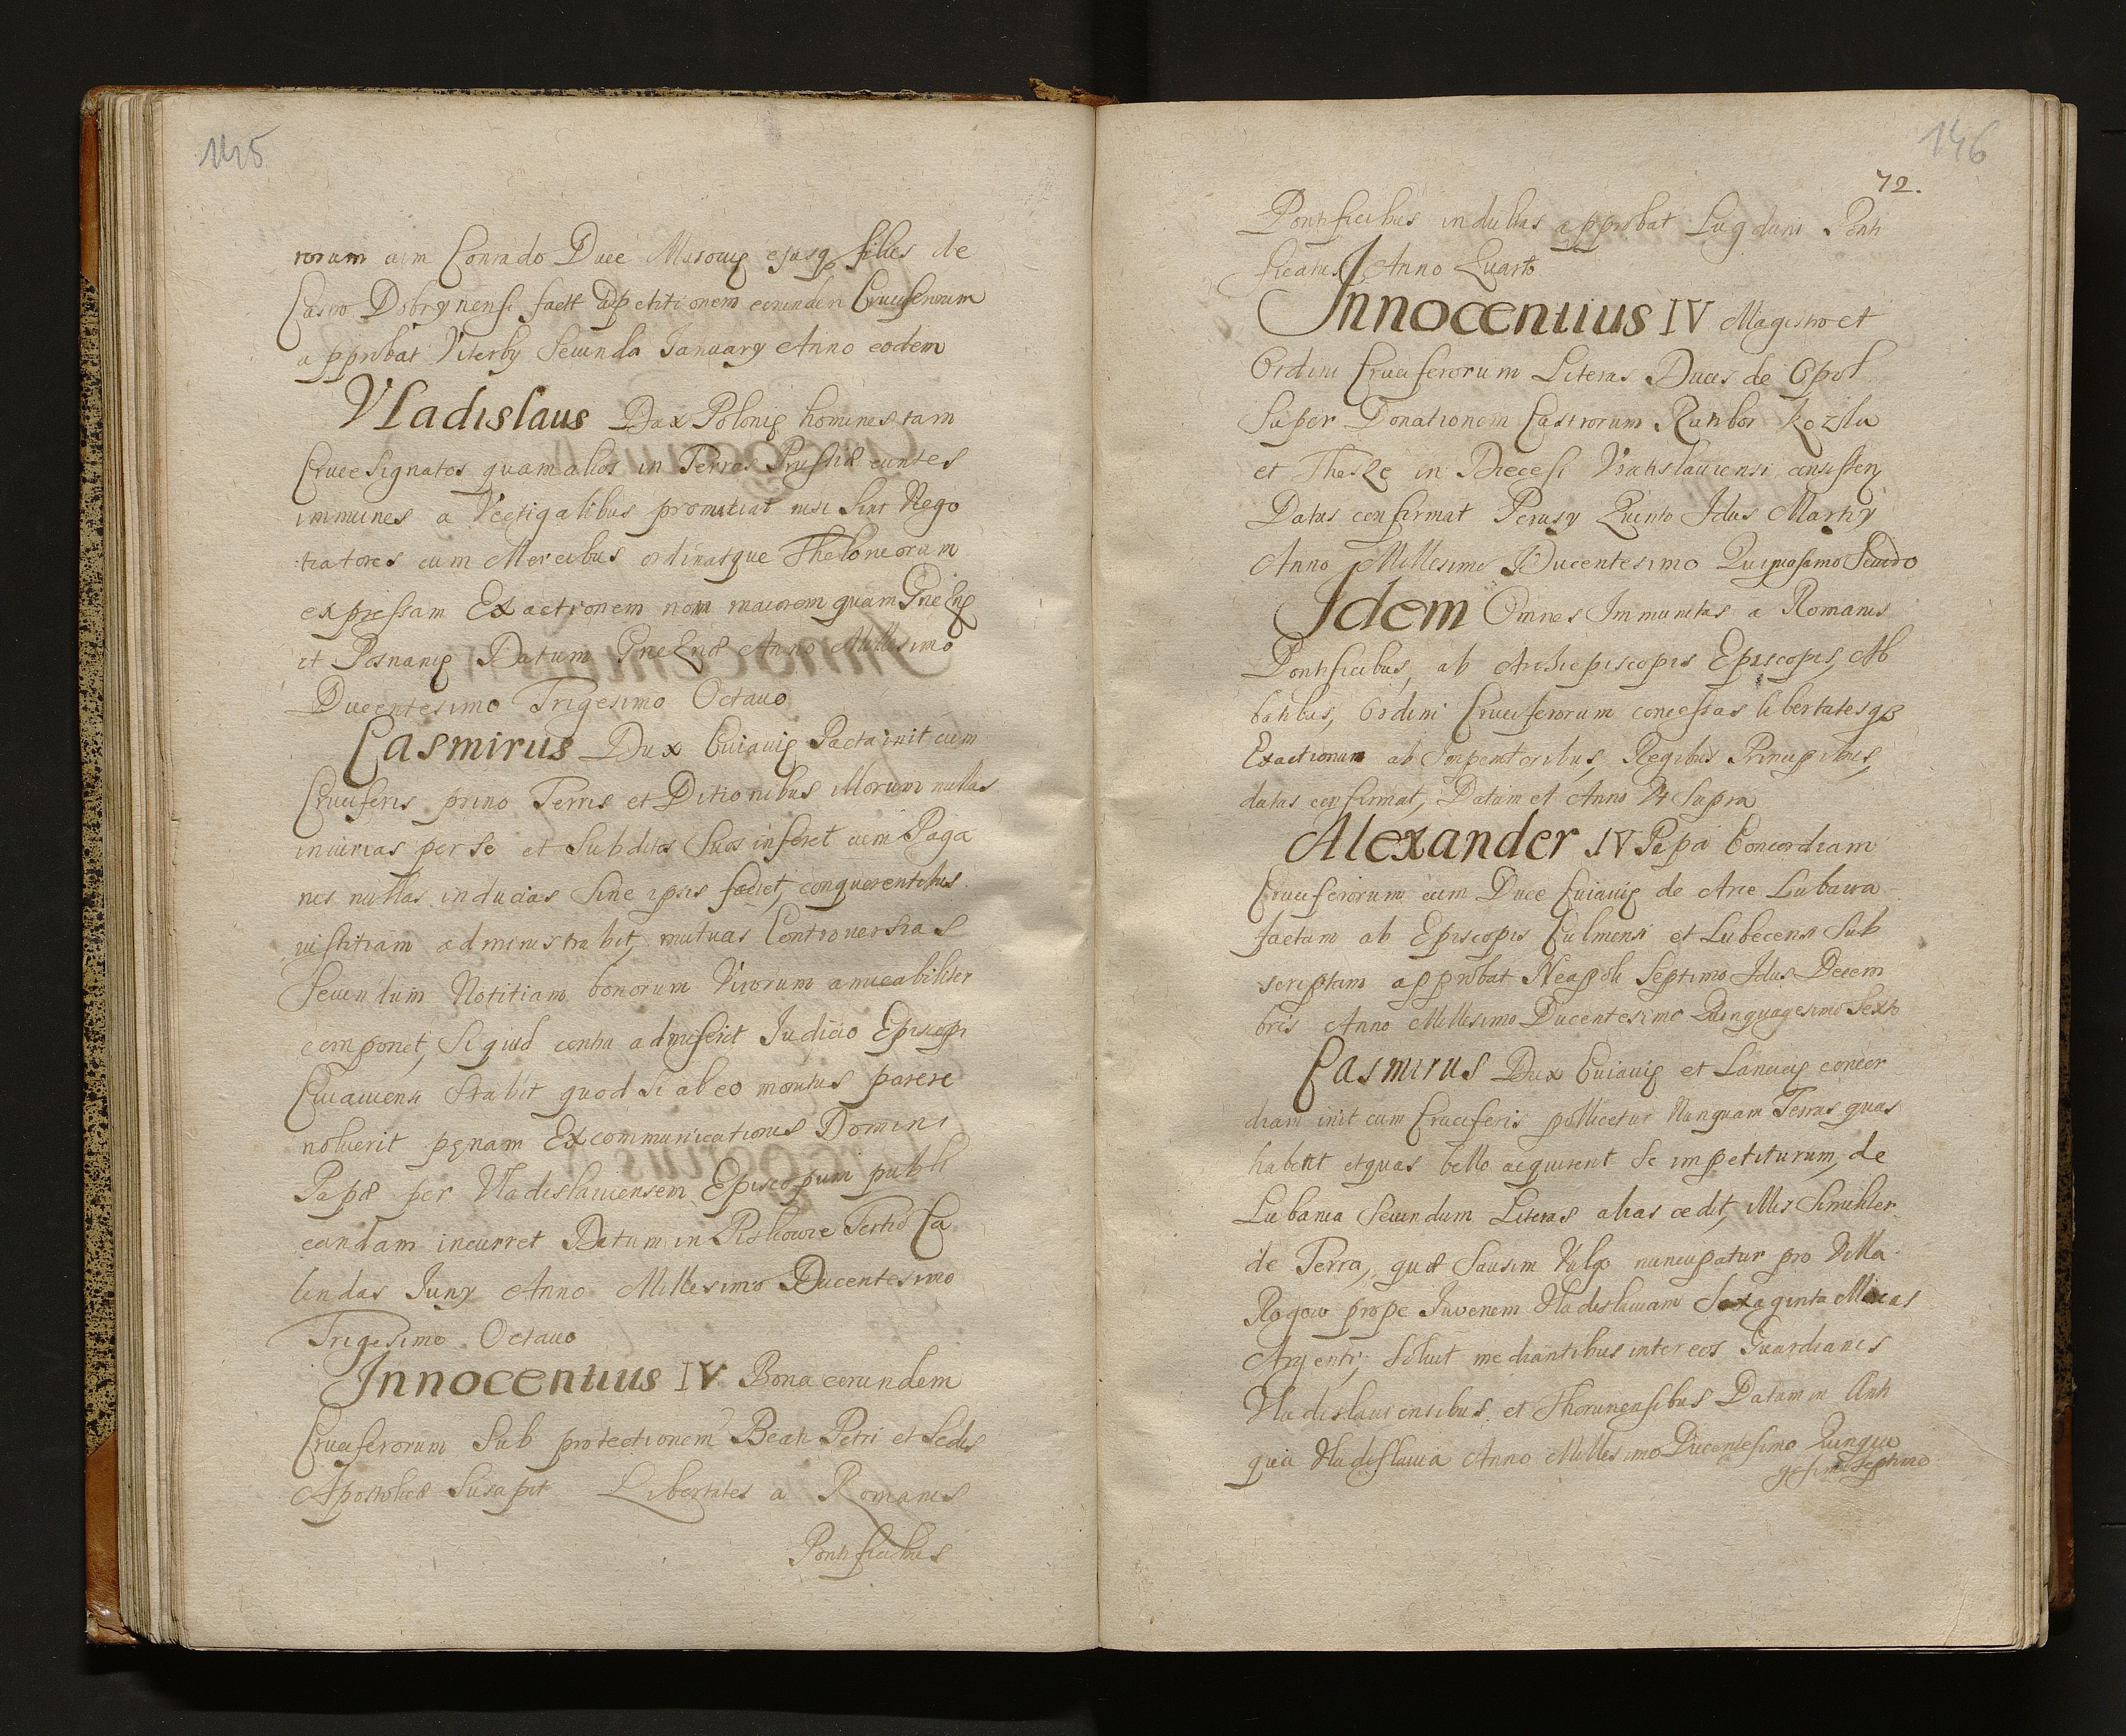 145
rorum cum Conrado Duce Masovię ejusqȝ filiis de
Castro Dobrynensi factā ad petitionem eorundem Cruciferorum
approbat Viterby Secunda January Anno eodem
Vladislaus Dux Polonię homines tam
Cruce Signatos quam alios in Terras Prussiæ euntes
immunes a Vectigalibus promittiat nisi Sint Nego
tiatores cum Mercibus ordinatque Theloneorum
expressam Exactionem non maiorem quam Gneznę
et Posnanię Datum Gneznæ Anno Millesimo
Ducentesimo Trigesimo Octauo
Casmirus Dux Cuiauię Pacta init cum
Cruciferis primo Terris et Ditionibus illorum nullas
iniurias per se et Subditos Suos inferet cum Paga
nis nullas inducias Sine ipsis faciet, conquerentibus
iustitiam administrabit, mutuas Controuersias
Secundum Notitiam bonorum Virorum amicabiliter
componet, Si quid contra admiserit Iudicio Episcopi
Cuiauiensi Stabit quod si ab eo monitus parere
noluerit pęnam Excommunicationis Domini
Papæ per Vladislauiensem Episcopum publi
candam incurret Datum in Pistkowie Tertio Ca
lendas Juny Anno Millesimo Ducentesimo
Trigesimo Octauo
Innocentius IV Bona eorundem
Cruciferorum Sub protectionem Beati Petri et Sedis
Apostolicæ Suscepit Libertates a Romanis
Pontificibus
146
72.
Pontificibus indultas approbat Lugduni Ponti
ficatus Anno Quarto
Innocentius IV Magistro et
Ordini Cruciferorum Literas Ducis de Opol
Super Donationem Castrorum Ratibor Kozila
et Thesze in Diecesi Vratislauiensi consisten
Datas confirmat Perusy Quinto Idus Marty
Anno Millesimo Ducentesimo Quiquasimo Secudo
Idem Omnes Immunitas a Romanis
Pontificibus, ab Archiepiscopis Episcopis, Ab
batibus, Ordini Cruciferorum concessas libertatesqȝ
Exactionum ab Imperatoribus, Regibus Principibus,
datas confirmat, Datum et Anno Vt Supra
Alexander IV Papa Concordiam
Cruciferorum cum Duce Cuiauię de Arce Lubawa
factam ab Episcopis Culmensi et Lubecensi Sub
scriptam approbat Neapoli Septimo Idus Decem
bris Anno Millesimo Ducentesimo Quinquagesimo Sexto
Casmirus Dux Cuiauię et Lancicię concor
diam init cum Cruciferis pollicetur Nunquam Terras quas
habent et quas bello acquirent Se impetiturum, de
Lubania Secundum Literas alias cedit, illis Similiter
de Terra, quæ Sausim Vulgo nuncupatur pro Villa
Rogow prope Iuvenem Vladislauiam Sexaginta Marcas
Argenti, Soluit mediantibus inter eos Guardianis
Vladislauiensibus et Thorunensibus Datum in Anti
qua Vladislauia Anno Millesimo Ducentesimo Quinqua
gesimo Septimo